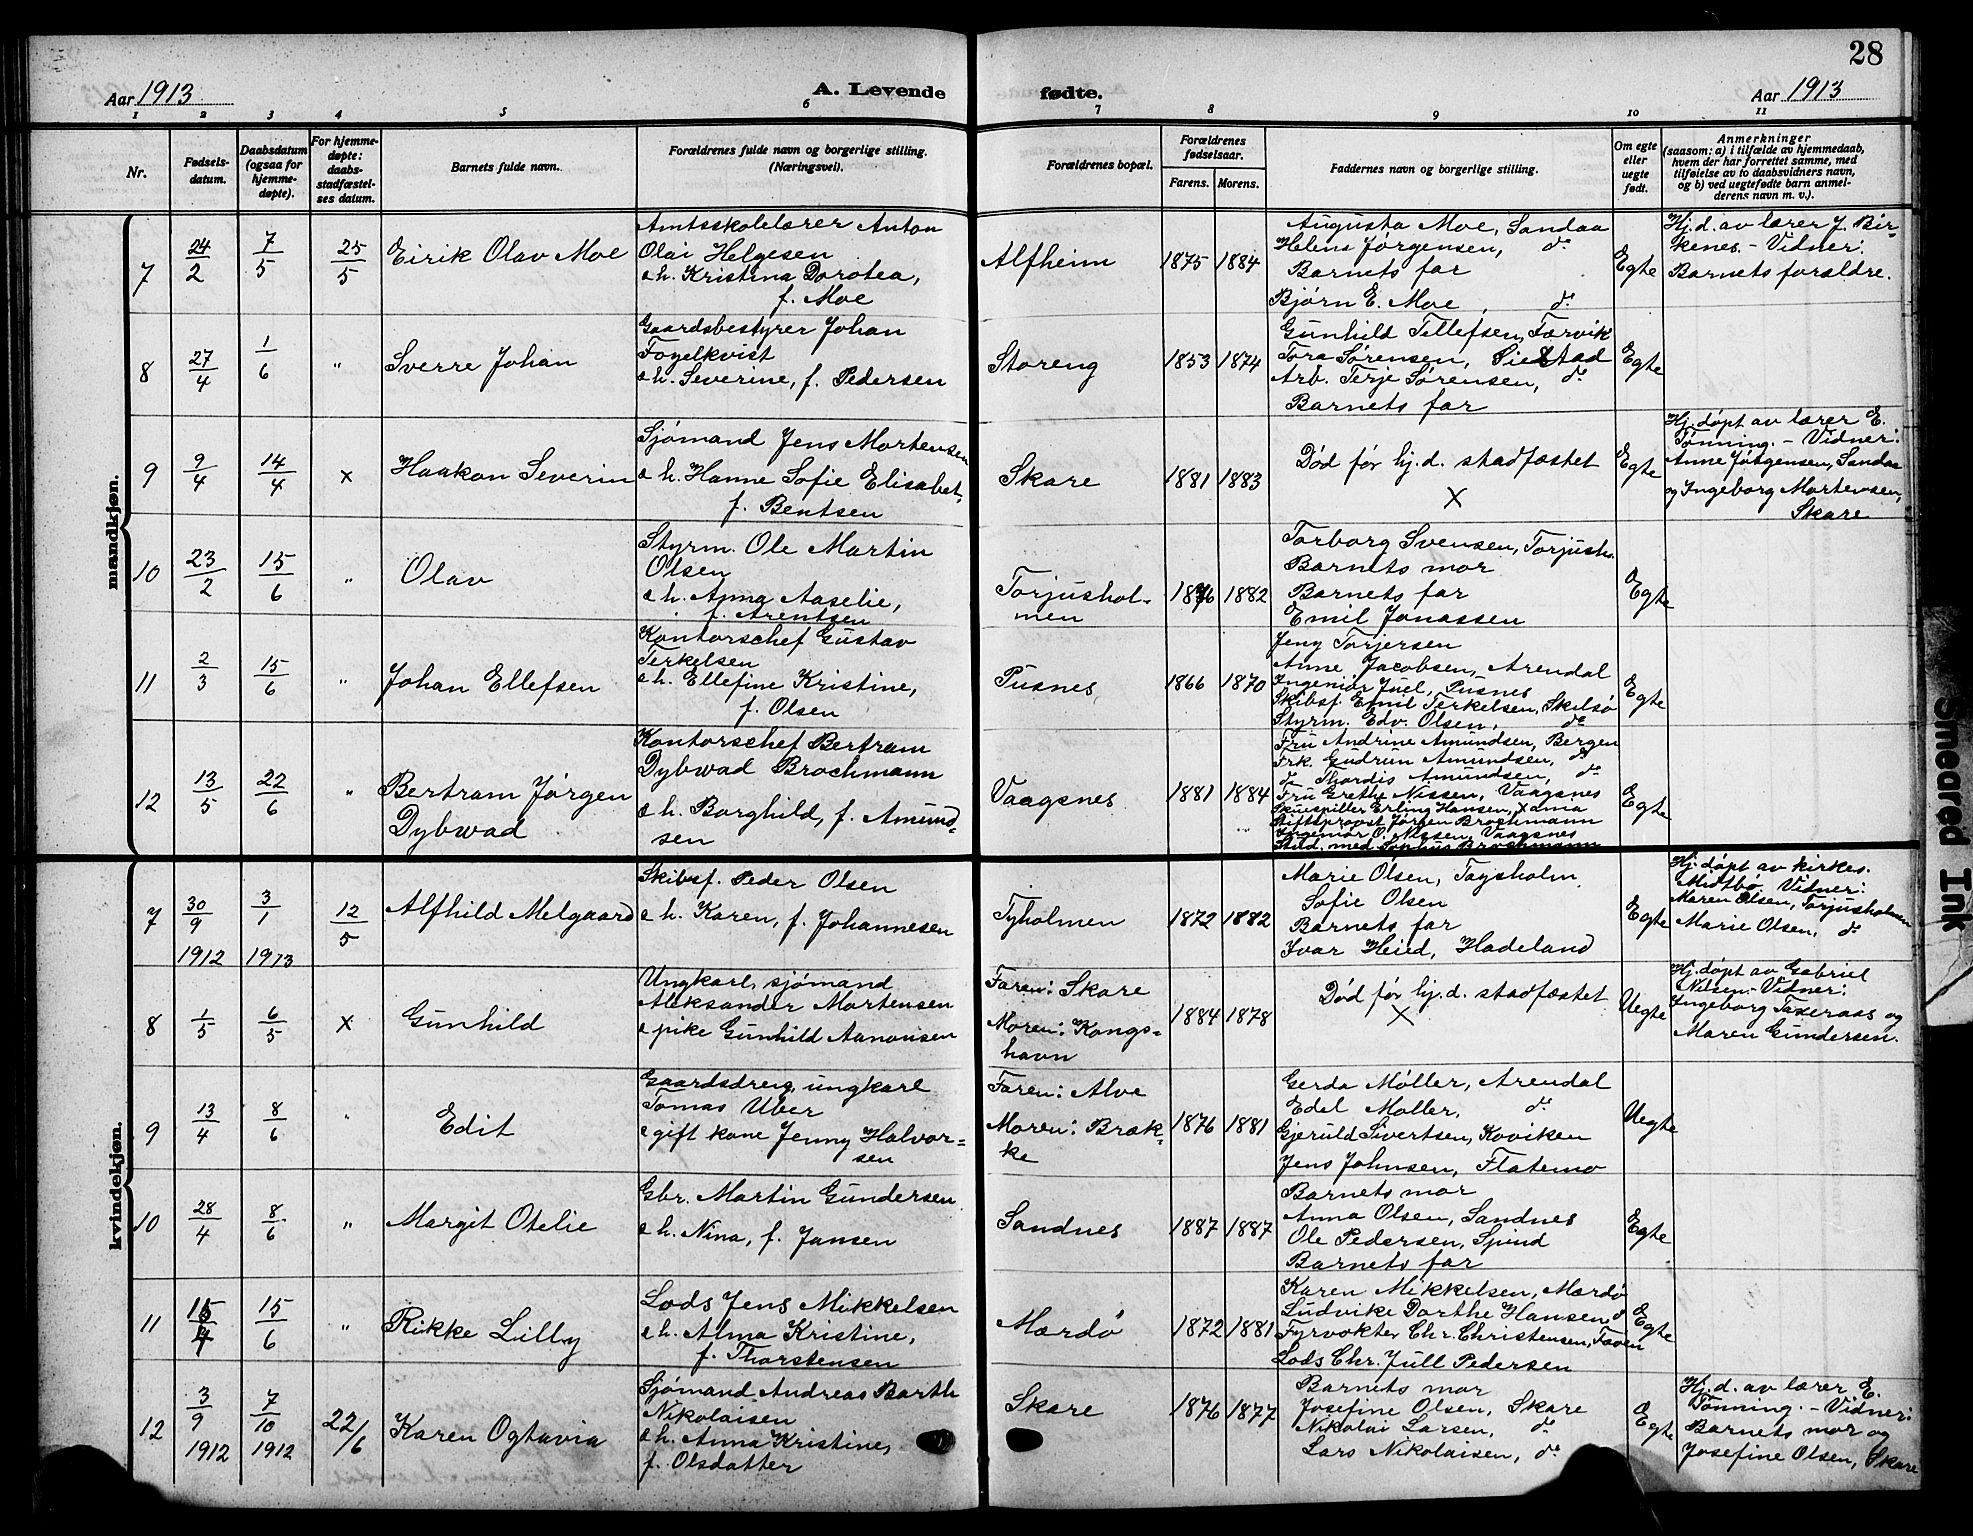 28
Aar 1913
A. Levende
fødte.
Aar 1913
1 2 3 4 5 6 7 8 9 10 11
Nr.
Fødsels-
datum.
Daabsdatum
(ogsaa for
hjemme-
døpte).
For hjemme-
døpte:
daabs-
stadfæstel-
ses datum.
Barnets fulde navn.
Forældrenes fulde navn og borgerlige stilling.
(Næringsvei).
Forældrenes bopæl.
Forældrenes
fødselsaar.
Farens. Morens.
Faddernes navn og borgerlige stilling.
Om egte
eller
uegte
født.
Anmerkninger
(saasom: a) i tilfælde av hjemmedaab,
hvem der har forrettet samme, med
tilføielse av to daabsvidners navn,
og b) ved uegtefødte barn anmel-
derens navn m. v.).
mandkjøn.
7
24/2
7/5
25/5
Eirik Olav Moe
Amtsskolelærer Anton
Olai Helgesen
o h. Kristina Dorotea,
f. Moe
Alfheim
1875 1884
Augusta Moe, Sandaa
Helens Jørgensen, do
Barnets far
Bjørn E. Moe do
Egte
Hj. d. av lærer J. Bir-
kenes. - Vidner:
Barnets forældre.
8
27/4
1/6
"
Sverre Johan
Gaardsbestyrer Johan
Fogelkvist
o h. Severine, f. Pedersen
Storeng
1853 1874
Gunhild Tellefsen, Færvik
Tora Sørensen,
Arb. Terje Sørensen, do
Barnets far
Egte
9
9/4
14/4
x
Haakon Severin
Sjømand Jens Mortensen
o h. Hanne Sofie Elisabet,
f. Bentsen
Skare
1881 1883
Død før hj. d. stadfæstet
x
Egte
Hj. døpt av lærer E.
Tønning. - Vidner:
Anne Jørgensen, Sandaa
og Ingeborg Mortensen,
Skare
10
23/2
15/6
"
Olav
Styrm. Ole Martin
Olsen
o h. Anna Aaselie,
f. Arentsen
Torjushol-
men
1876 1882
Torborg Svensen, Torjush.
Barnets mor
Barnets far
Emil Jonassen
Egte
11
2/3
15/6
"
Johan Ellefsen
Kontorschef Gustav
Terkelsen
o h. Ellefine Kristine,
f. Olsen
Pusnes
1866 1870
Jeny Torjersen
Anne Jacobsen, Arendal
Ingeniør Juel, Pusnes
Skibsf. Emil Terkelsen, Skilsø
Styrm. Edv. Olsen, do
Egte
12
13/5
22/6
"
Bertram Jørgen
Dybwad
Kontorschef Bertram
Dybwad Brochmann
o h. Borghild, f. Amund-
sen
Vaagsnes
1881 1884
Fru Andrine Amundsen, Bergen
Frk. Gudrun Amundsen, do
do Thordis Amundsen, do
Fru Grethe Nissen, Vaagsnes
Skuespiller Erling Hansen, Xania
Stiftsprovst Jørgen Brochmann
Ingeniør O. Nissen, Vaagsnes
Stud. med Sophus Brochmann
Egte
kvindekjøn.
7
30/9
1912
3/1
1913
12/5
Alfhild Melgaard
Skibsf. Peder Olsen
o h. Karen, f. Johannesen
Tyholmen
1872 1882
Marie Olsen, Tagsholm
Sofie Olsen
Barnets far
Ivar Heied, Hadeland
Egte
Hj. døpt av kirkes.
Midtbø. Vidner:
Maren Olsen, Torjusholmen
Marie Olsen, do
8
1/5
6/5
x
Gunhild
Ungkarl, sjømand
Aleksander Mortensen
o pike Gunhild Aanonsen
Faren: Skare
Moren: Kongs-
havn
1884 1878
Død før hj. d. stadfæstet
x
Uegte
Hj. døpt av Gabriel
Nilsen - Vidner:
Ingeborg Taxeraas og
Maren Gundersen.
9
13/4
8/6
"
Edit
Gaardsdreng, ungkarl
Tomas Uber
o gift kone Jenny Halvor-
sen
Faren: Alve
Moren: Bræk-
ke
1876 1881
Gerda Møller, Arendal
Edel Møller, do
Gjeruld Sivertsen, Koviken
Jens Johnsen, Flatemo
Uegte
10
28/4
8/6
"
Margit Otelie
Gbr. Martin Gundersen
o h. Nina, f. Jansen
Sandnes
1887 1887
Barnets mor
Anna Olsen, Sandnes
Ole Pedersen, Spind
Barnets far
Egte
11
15/4
15/6
"
Rikke Lilly
Lods Jens Mikkelsen
o h. Alma Kristine,
f. Thorstensen
Mærdø
1872 1881
Karen Mikkelsen, Mærdø
Ludvike Dorthe Hansen do
Fyrvokter Chr. Christensen,
Lods Chr. Jull Pedersen
Egte
12
3/9
1912
7/10
1912
22/6
Karen Ogtavia
Sjømand Andreas Barth
Nikolaisen
o h. Anna Kristine,
f. Olsdatter
Skare
1876 1877
Barnets mor
Josefine Olsen, Skare
Nikolai Larsen, do
Lars Nikolaisen, do
Egte
Hj. d. av lærer E.
Tønning. - Vidner:
Barnets mor og
Josefine Olsen, Skare
Smeared Ink